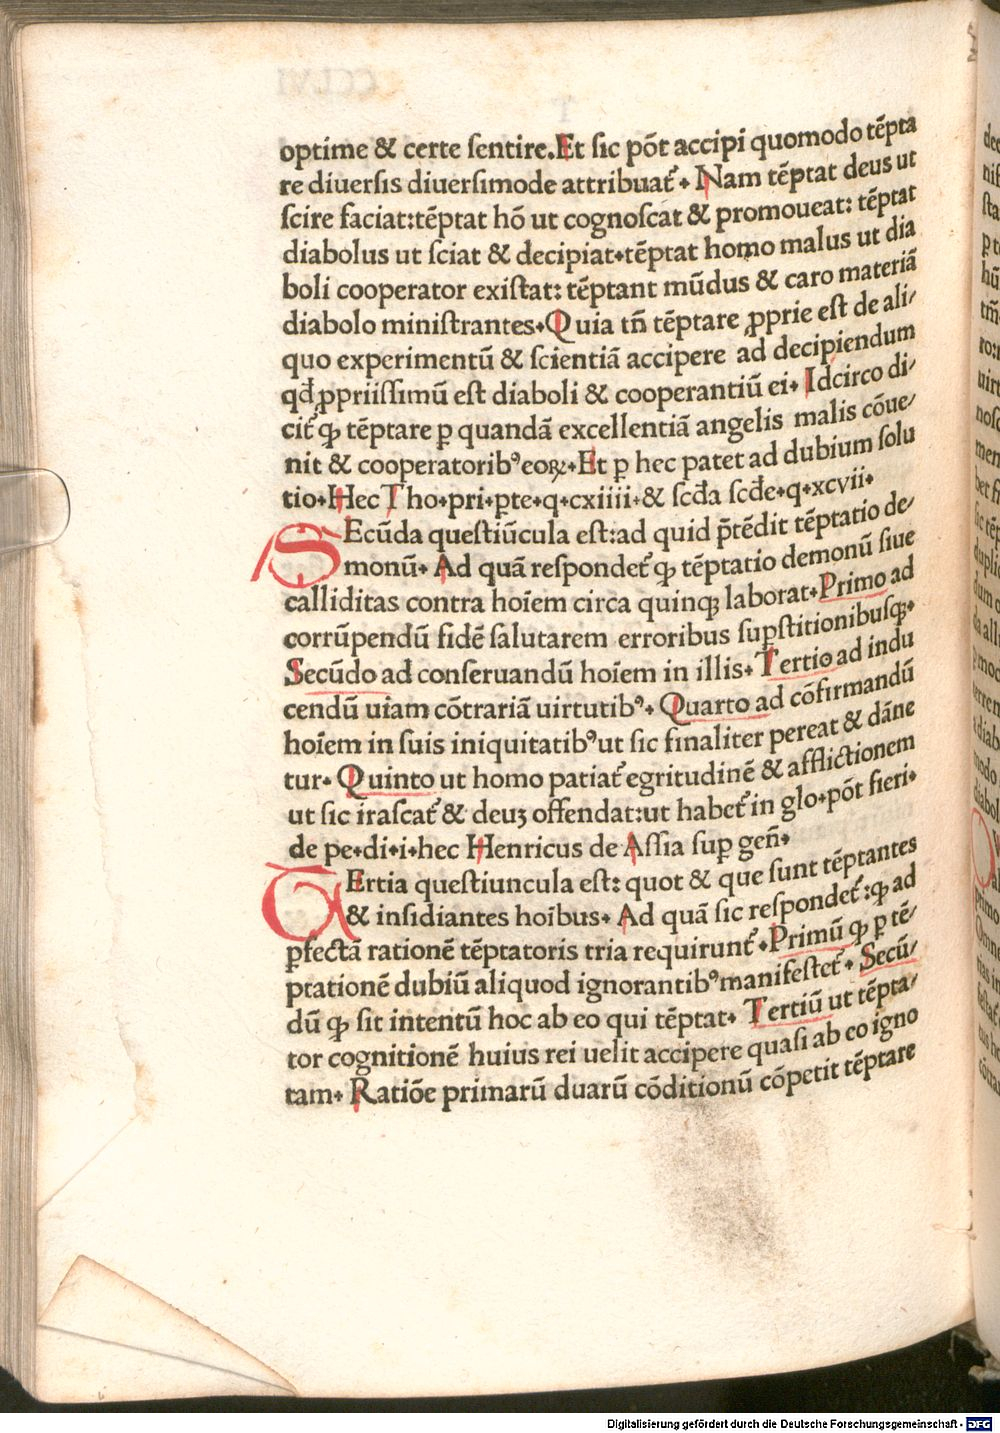 optime & certe ſentire.Et ſic põt accipi quomodo tẽpta
re diuerſis diuerſimode attribuat᷑. Nam tẽptat deus ut
ſcire faciat:tẽptat hõ ut cognoſcat & promoueat: tẽptat
diabolus ut ſciat & decipiat.tẽptat homo malus ut dia
boli cooperator exiſtat: tẽptant mũdus & caro materiã
diabolo miniſtrantes.Quia tñ tẽptare ꝓprie eſt de ali/
quo experimentũ & ſcientiã accipere ad decipiendum
qđ ꝓpriiſſimũ eſt diaboli & cooperantiũ ei. Idcirco di/
cit᷑ ꝙ tẽptare ꝑ quandã excellentiã angelis malis cõue/
nit & cooperatoribꝰ eoꝝ. Et ꝑ hec patet ad dubium ſolu
tio.Hec Tho.pri.ꝑte.q.cxiiii.& ſcđa ſcđe.q.xcvii.
SEcũda queſtiũcula eſt:ad quid p̃tẽdit tẽptatio de/
monũ. Ad quã reſpondet᷑ ꝙ tẽptatio demonũ ſiue
calliditas contra hoĩem circa quinqꝫ laborat.Primo ad
corrũpendũ fidẽ ſalutarem erroribus ſuꝑſtitionibuſqꝫ.
Secũdo ad conſeruandũ hoĩem in illis. Tertio ad indu
cendũ uiam cõtrariã uirtutibꝰ. Quarto ad cõfirmandũ
hoĩem in ſuis iniquitatibꝰ ut ſic finaliter pereat & dãne
tur. Quinto ut homo patiat᷑ egritudinẽ & afflictionem
ut ſic iraſcat᷑ & deuꝫ offendat:ut habet᷑ in glo.põt fieri.
de pe.di.i.hec Henricus de Aſſia ſuꝑ geñ.
TErtia queſtiuncula eſt: quot & que ſunt tẽptantes
& inſidiantes hoĩbus. Ad quã ſic reſpondet᷑:ꝙ ad
ꝑfectã rationẽ tẽptatoris tria requirunt᷑.Primũ ꝙ ꝑ tẽ/
ptationẽ dubiũ aliquod ignorantibꝰ manifeſtet᷑. Secũ/
dũ ꝙ ſit intentũ hoc ab eo qui tẽptat. Tertiũ ut tẽpta/
tor cognitionẽ huius rei uelit accipere quaſi ab eo igno
tam. Ratiõe primarũ duarũ cõditionũ cõpetit tẽptare
Digitalisierung gefördert durch die Deutsche Forschungsgemeinschaft - DFG